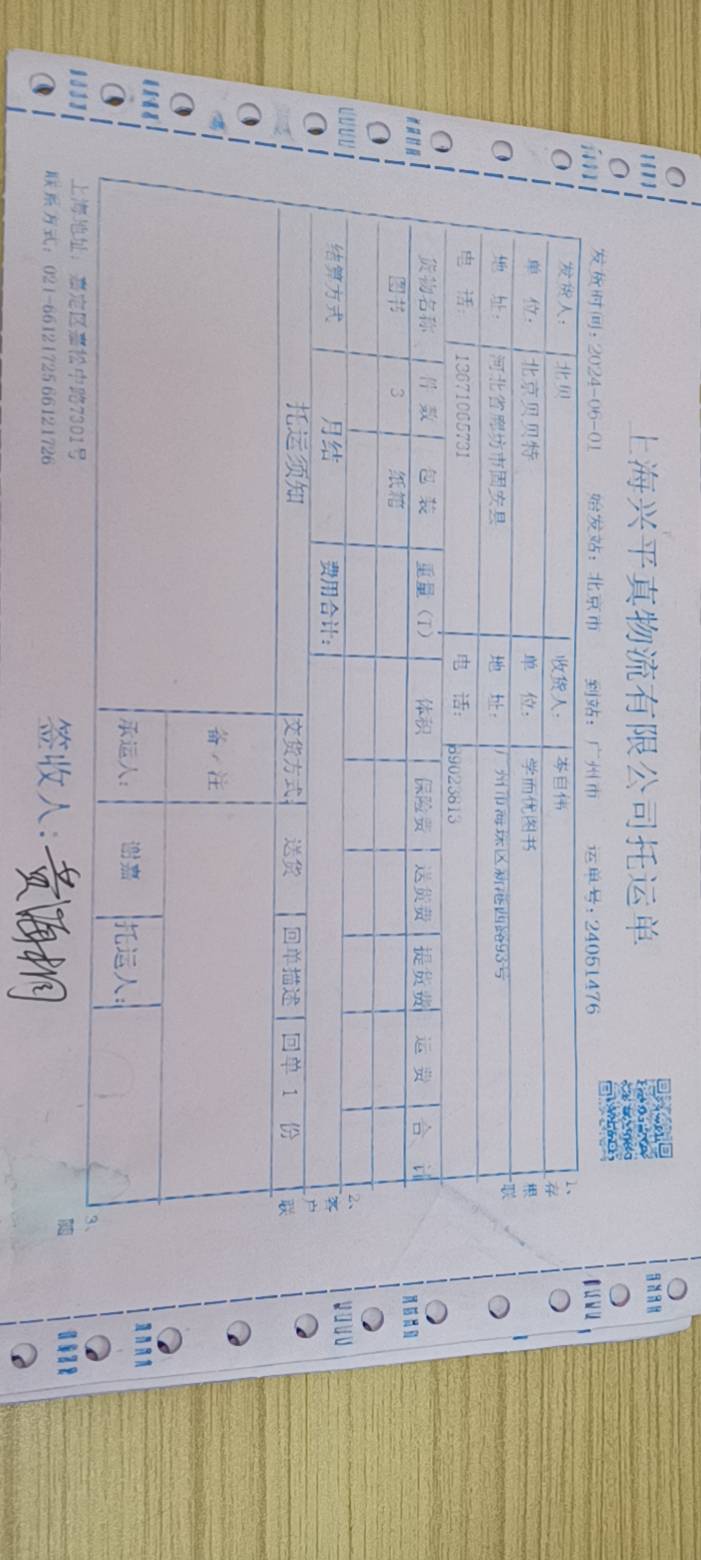 上海兴平真物流有限公司托运单
发货时间：2024-06-01 始发站：北京市 到站：广州市 运单号：24051476
发货人： 北贝 收货人： 李自伟
单 位： 北京贝贝特 单 位： 学而优图书
地 址： 河北省廊坊市固安县 地 址： 广州市海珠区新港西路93号
电 话： 13671065731 电 话： 89023813
货物名称 件 数 包 装 重量（T） 体积 保险费 送货费 提货费 运 费 合 计
图书 3 纸箱
结算方式 月结 费用合计：
托运须知 交货方式： 送货 回单描述 回单 1 份
备 / 注
承运人： 谢嘉 托运人：
上海地址：嘉定区嘉松中路7301号
联系方式：021-66121725 66121726
签收人：
1、存根联
2、客户联
3、随